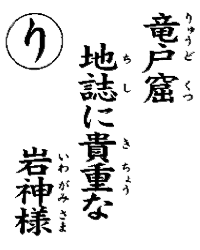 竜戸窟
地誌に貴重な
岩神様
り
りゅうど くつ
ちし きちょう
いわがみさま